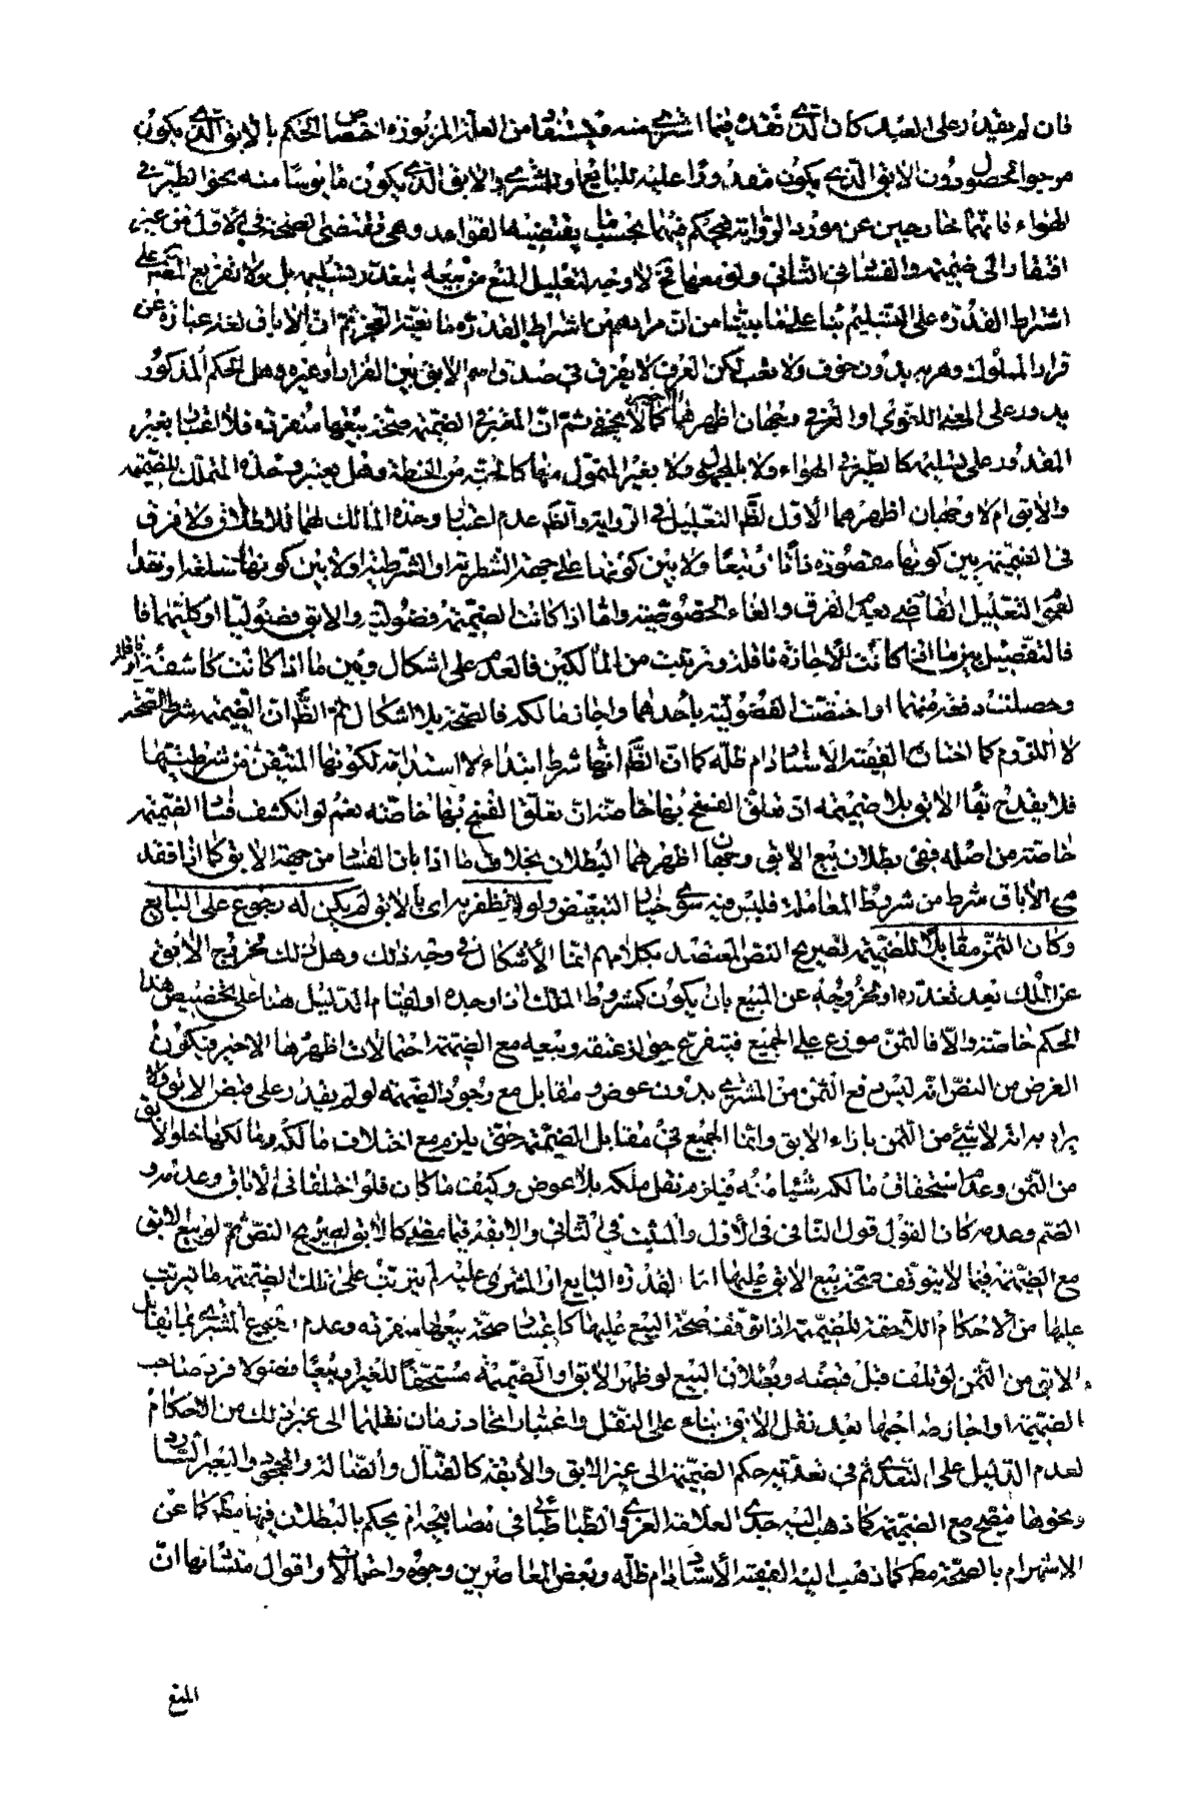 فان لم يقدر على العبد كان الّذي نقده فيما اشترى منه ويستفاد من العلّة المزبورة اختصاص الحكم بالابق الّذي يكون
مرجوا لحصول دون الابق الّذي يكون مقدورا عليه للبايع او للمشتري والابق الّذي يكون مايوسا منه بحو الطير في
الهواء فانهما خارجين عن مورد الرّواية فيحكم فيهما بحسب ما يقتضيه القواعد وهى تقتضى الصّحة في الاوّل من غير
افتقار الى ضميمة والفساد فى الثانى ولو معها لا وجه لتعليل المنع من بيعه بتعذر تسليمه بل ولا تفريع المنع على
اشتراط القدرة على التّسليم بناء على ما بيّنا من ان مرادهم من اشتراط القدرة مانعيّة العجز ثمّ انّ الاباق لغة عبارة عن
فرار المملوك وهربه بدون خوف ولا تعب لكن العرف لا يفرق في صدق اسم الابق بين الفرار او غيره وهل الحكم المذكور
يدور على المعنى اللغوي او العرفي وجهان اظهرهما كما لا يخفى ثمّ انّ المعتبر في الضميمة صحّة بيعها منفردة فلا اعتبار بغير
المقدور على تسليمه كالطير في الهواء ولا بالمجهول ولا بغير المتموّل منها كالحبّة من الحنطة وهل يعتبر وحدة المالك للضميمة
والابق ام لا وجهان اظهرهما الاوّل لظ التعليل في الرّواية وانظهر عدم اعتبار وحدة المالك لهما للاطلاق ولا فرق
فى الضّميمة بين كونها مقصودة ذاتا او تبعا ولا بين كونها على جهة الشطرية او الشرطية ولا بين كونها سلعة او نقدا
لعموم التعليل القاضي بعدم الفرق والغاء الخصوصيّة وامّا اذا كانت الضميمة فضولية والابق فضوليّا او كليهما فا
فالتفصيل بين ما اذا كانت الاجازة ناقلة وترتبت من المالكين فالعدم على اشكال وبين ما اذا كانت كاشفة او ناقلة
وحصلت دفعة منهما او اختصّت الفضوليّة باحدهما واجاز مالكه فالصّحة بلا اشكال ثمّ الظّ ان الضميمة شرط الصّحة
لا اللزوم كما اختاره الفقيه الاستاد دام ظلّه كما انّ الظّ انّها شرط ابتداء لا استدامة لكونها المتيقن من شرطيتها
فلا يقدح بقاء الابق بلا ضميمة اذ تعلق الفسخ بها خاصّة ان تعلّق الفسخ بها خاصّة نعم لو انكشف فساد الضّميمة
خاصّة من اصله ففى بطلان بيع الابق وجهان اظهرهما البطلان بخلاف ما اذا بان الفساد من جهة الابق كما اذا فقد
من الاباق شرط من شروط المعاملة فليس فيه سوى خيار التبعّض ولو لم يظفر به اى بالابق لم يكن له رجوع على البايع
وكان الثمن مقابلا للضميمة لصريح النص المعتضد بكلامهم انما الاشكال في وجه ذلك وهل ذلك لخروج الابق
عن الملك بعد تعذّره او لخروجه عن المبيع بان يكون كمشروط الملك اذا وجده او لقيام الدّليل هنا على تخصيص هذا
الحكم خاصّة والّا فالثمن موزع على الجميع فيتفرع جواز عتقه وبيعه مع الضميمة احتمالات اظهرها الاخير فيكون
الغرض من النصّ انّه ليس دفع الثمن من المشتري بدون عوض ومقابل مع وجود الضميمه لو لم يقدر على قبض الابق ولا
يراد به انه لا شئ من الثمن بازاء الابق وانما الجميع في مقابل الضميمة حتى يلزم مع اختلاف مالكه ومالكها خلو الابق
من الثمن وعدم استحقاق مالكه شيئا منه فيلزم نقل ملكه بلا عوض وكيف ما كان فلو اختلفا فى الاباق وعدمه و
الضّم وعدمه كان القول قول النافى فى الاول والمثبت في الثانى والابقة فيما مضى كالابق لصريح النصّ ثم لو بيع الابق
مع الضميمة فيما لا يتوقف صحّة بيع الابق عليها اما لقدرة البايع او المشترى عليه لم يترتب على تلك الضميمة ما يترتب
عليها من الاحكام اللاحقة للضميمة اذا توقفت صحّة البيع عليها كاعتبار صحّة بيعها منفردة وعدم رجوع المشترى بما يقابل
الابق من الثمن لو تلف قبل قبضه وبطلان البيع لو ظهر الابق او الضّميمة مستحقّا للغير وبيعا فضولا فرد صاحب
الضميمة او اجاز صاحبها بعد نقل الابق بناء على النّقل واعتبار اتحاد زمان نقلهما الى غير ذلك من الاحكام
لعدم الدّليل على التعدّي ثم فى تعدّية حكم الضميمة الى غير الابق والابقة كالضّال والضّالة والمجحود والبعير الشارد
ونحوها فيصح مع الضميمة كما ذهب اليه جدي العلامة الغروي الطباطبائي في مصابيحه ام يحكم بالبطلان فيها مط كما عن
الاشهر ام بالصحّة مط كما ذهب اليه الفقيه الاستاد دام ظلّه وبعض المعاصرين وجوه واحتمالات واقوال منشائها انّ
المنع